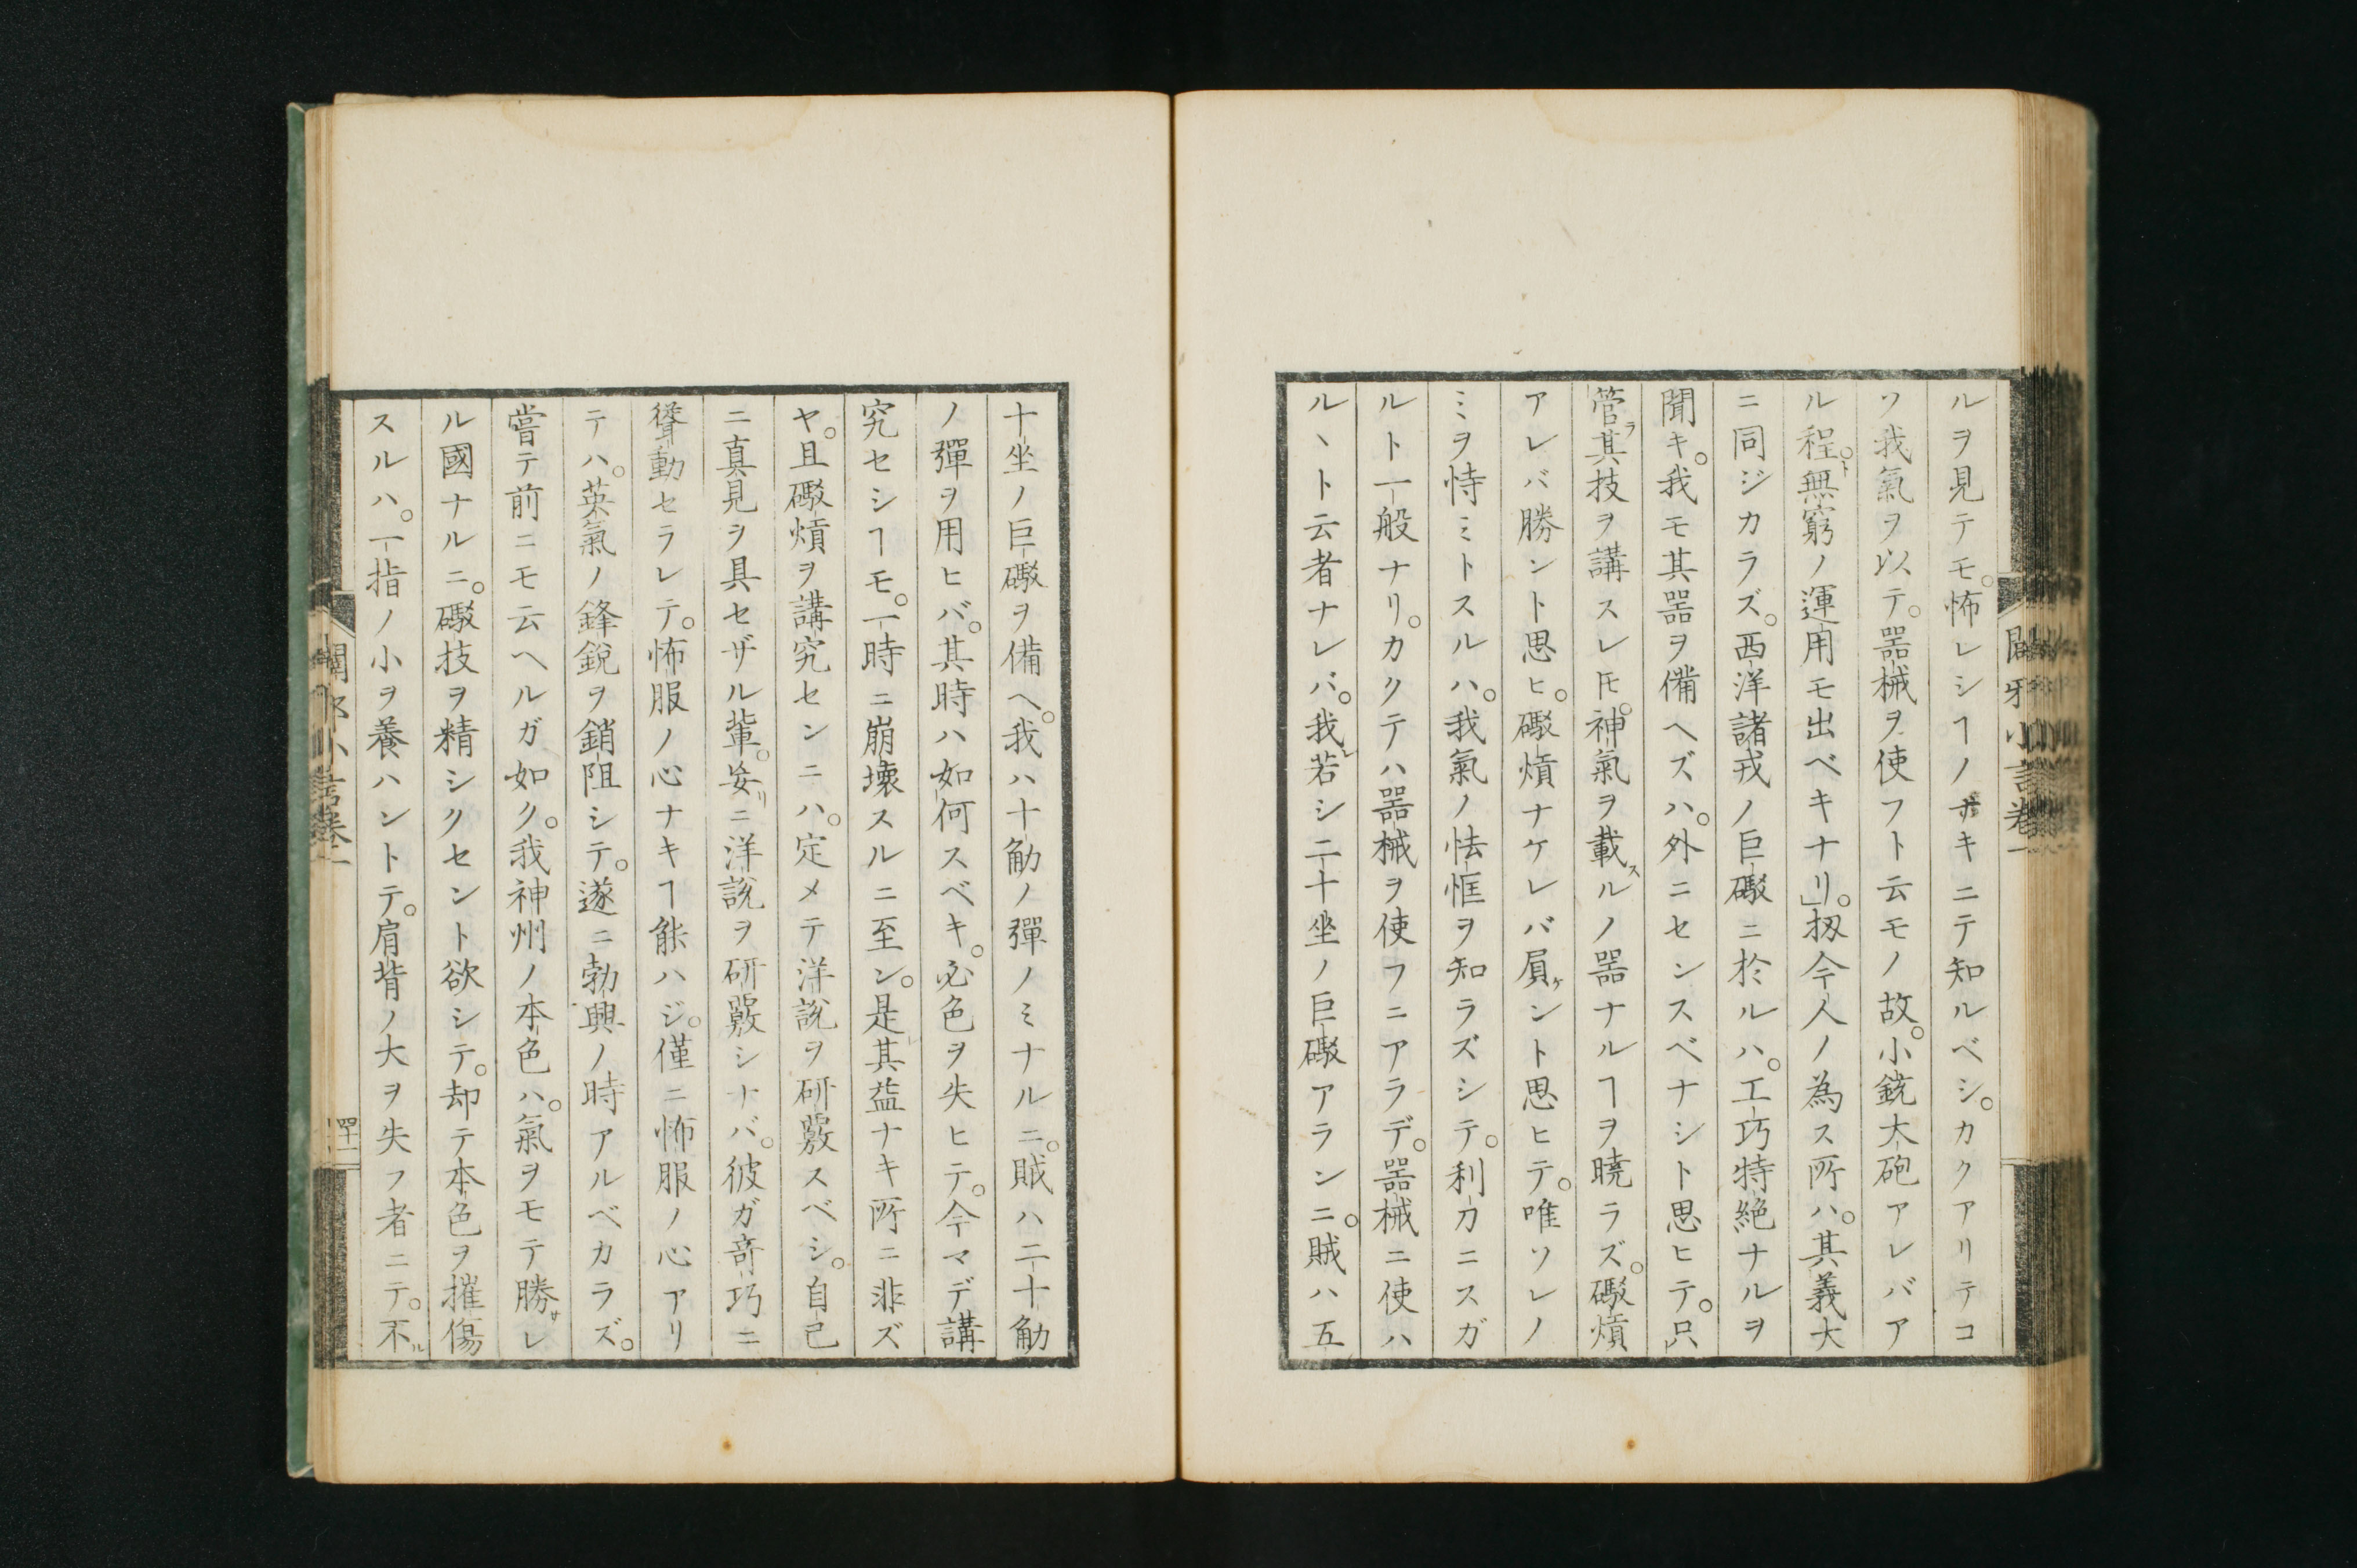 ルヲ見テモ。怖レシヿノナキニテ知ルベシ。カクアリテコ
ソ我氣ヲ以テ。器械ヲ使フト云モノ故。小銃大砲アレバア
ル程。無窮ノ運用モ出ベキナリ」。扨今人ノ為ス所ハ。其義大
ニ同ジカラズ。西洋諸戎ノ巨礮ニ於ルハ。工巧特絶ナルヲ
聞キ。我モ其器ヲ備ヘズハ。外ニセンスベナシト思ヒテ。只
管其技ヲ講スレ𪜈。神氣ヲ載スルノ器ナルヿヲ曉ラズ。礮熕
アレバ勝ント思ヒ。礮熕ナケレバ屓ケント思ヒテ。唯ソレノ
ミヲ恃ミトスルハ。我氣ノ怯恇ヲ知ラズシテ。利刀ニスガ
ルト一般ナリ。カクテハ器械ヲ使フニアラデ。器械ニ使ハ
ルヽト云者ナレバ。我若シ二十坐ノ巨礮アランニ。賊ハ五
十坐ノ巨礮ヲ備ヘ。我ハ十觔ノ彈ノミナルニ。賊ハ二十觔
ノ彈ヲ用ヒバ。其時ハ如何スベキ。必色ヲ失ヒテ。今マデ講
究セシヿモ。一時ニ崩壞スルニ至ン。是其益ナキ所ニ非ズ
ヤ。且礮熕ヲ講究センニハ。定メテ洋説ヲ研覈スベシ。自己
ニ真見ヲ具セザル輩。妄リニ洋説ヲ研覈シナバ。彼ガ奇巧ニ
聳動セラレテ。怖服ノ心ナキヿ能ハジ。僅ニ怖服ノ心アリ
テハ。英氣ノ鋒銳ヲ銷阻シテ。遂ニ勃興ノ時アルベカラズ。
嘗テ前ニモ云ヘルガ如ク。我神州ノ本色ハ。氣ヲモテ勝サレ
ル國ナルニ。礮技ヲ精シクセント欲シテ。却テ本色ヲ摧傷
スルハ。一指ノ小ヲ養ハントテ。肩背ノ大ヲ失フ者ニテ。不ル
闢邪小言卷二